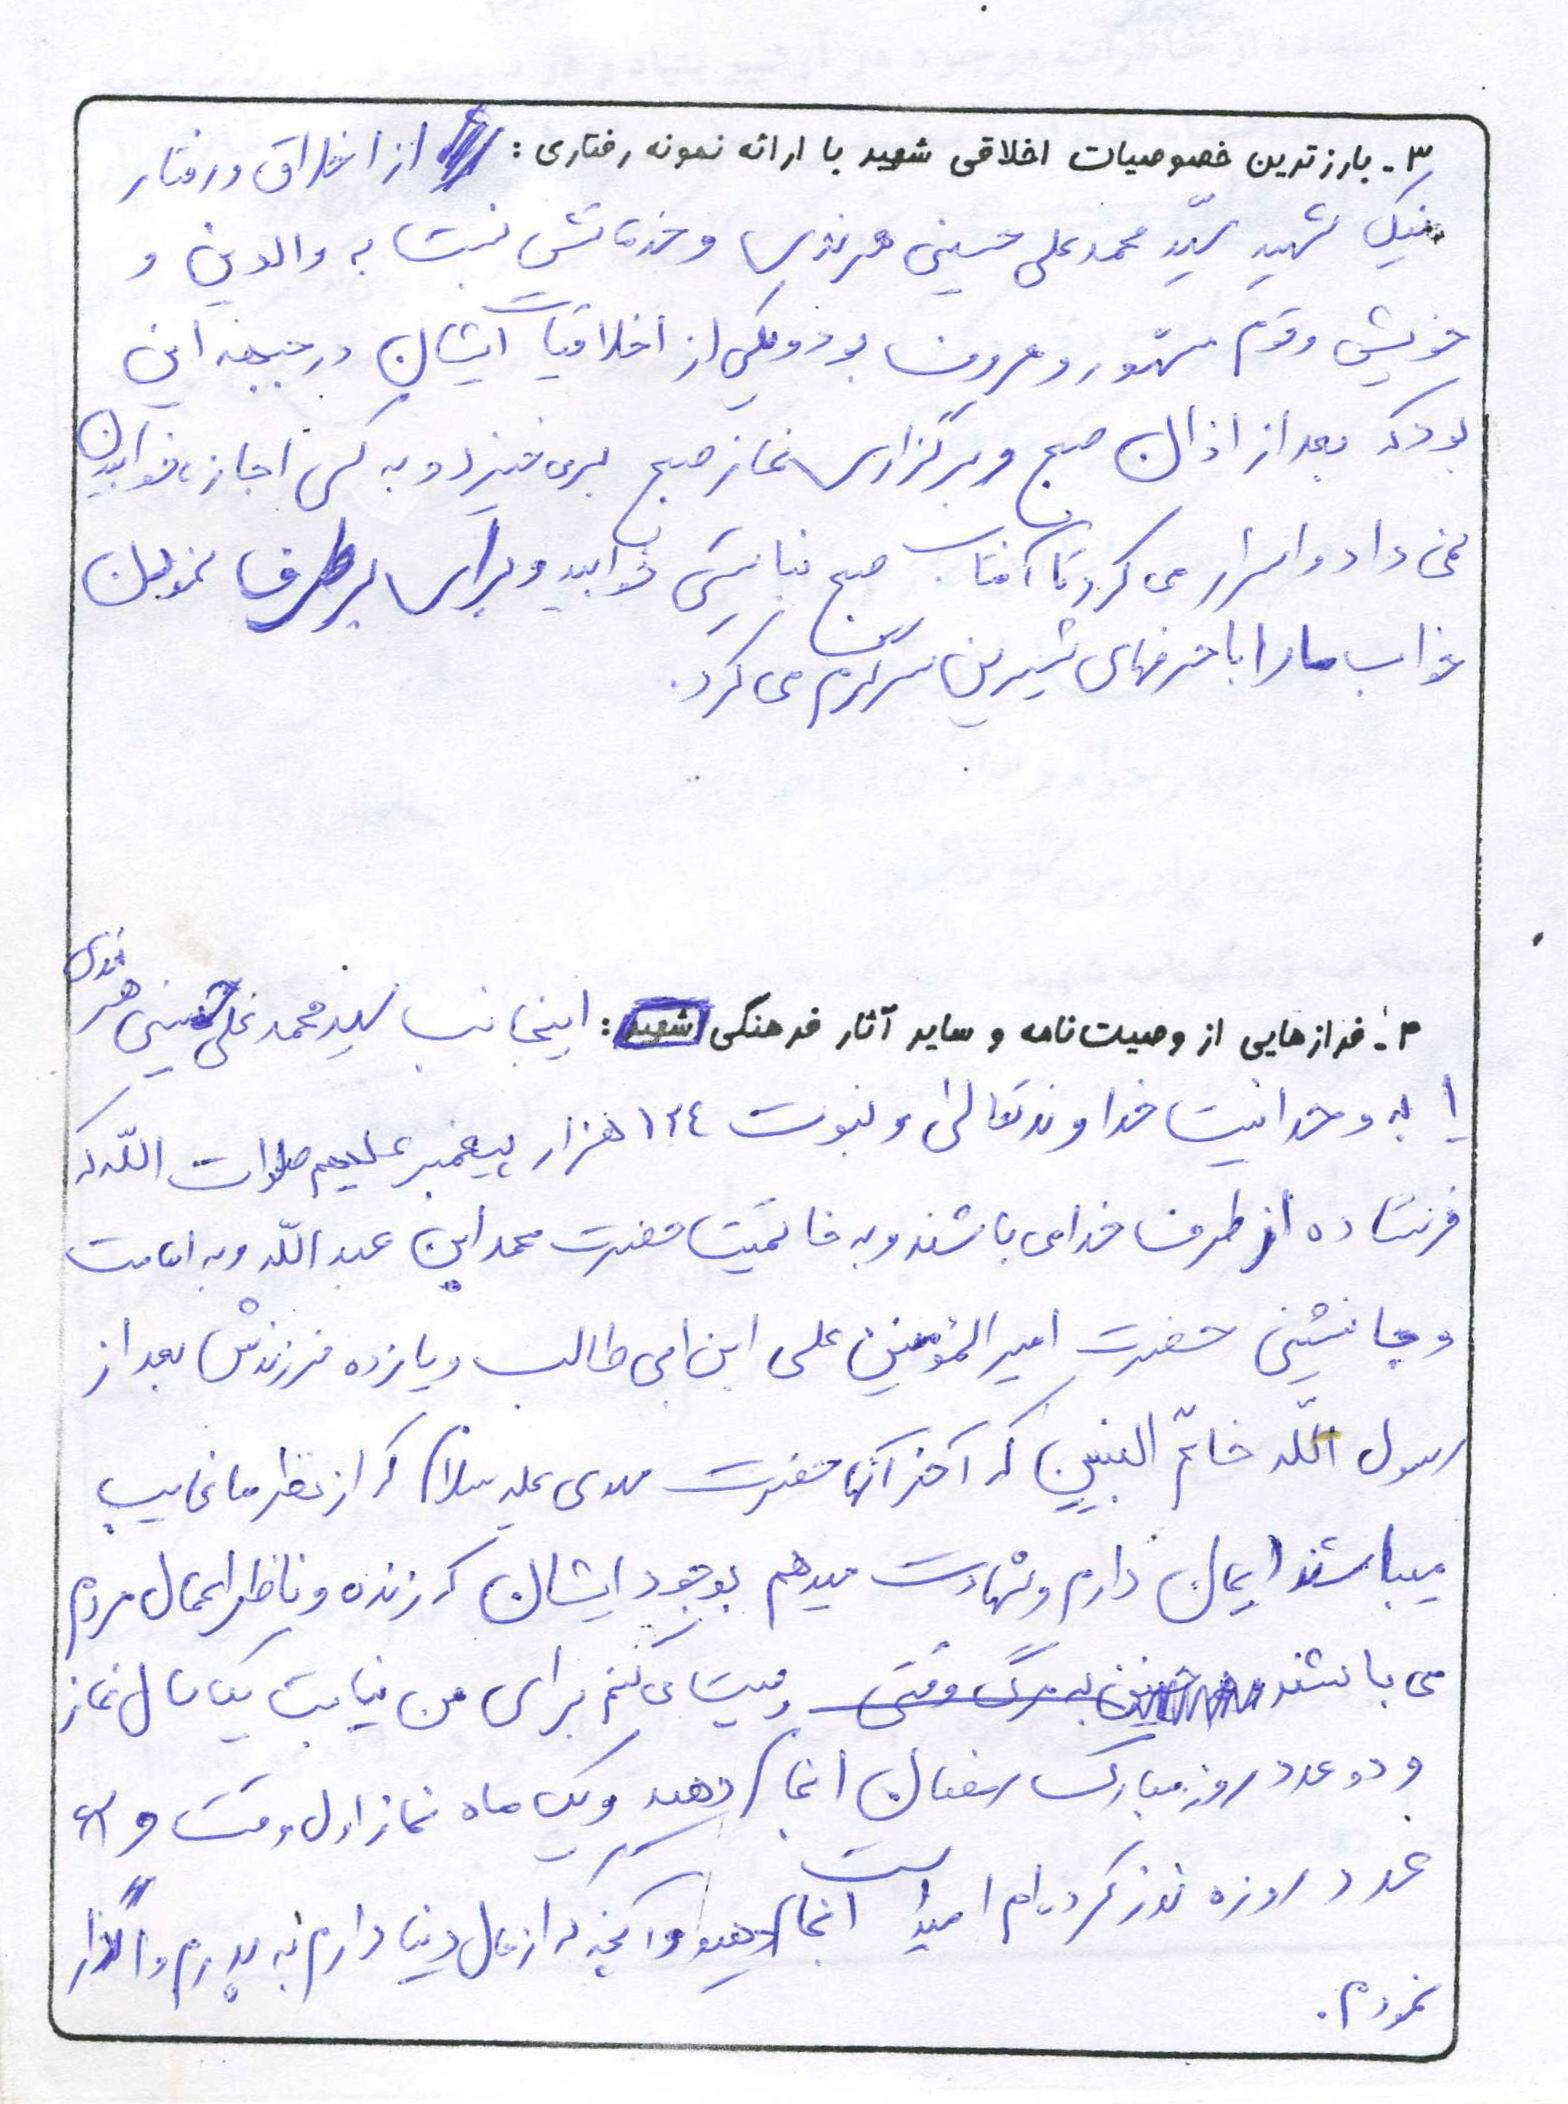 ۳- بارزترین خصوصیات اخلاقی شهید با ارائه نمونه رفتاری: از اخلاق و رفتار
نیک شهید سیّد محمد علی حسینی هرندی و خدماتش نسبت به والدین و
خویش و قوم مشهور و معروف بود و یکی از اخلاقیات ایشان در جبهه این
بود که بعد از اذان صبح و برگزاری نماز صبح برمی خیزد و به کسی اجازه خوابیدن
نمی داد و اسرار می کرد تا آفتاب صبح نبایستی خوابید و برای برطرف نمودن
خواب ما را با حرفهای شیرین سرگرم می کرد.
۴- فرازهایی از وصیت‌نامه و سایر آثار فرهنگی شهید: اینجانب سید محمد علی حسینی هرندی
به وحدانیت خداوند تعالی و نبوت ۱۲٤ هزار پیغمبر علیهم صلوات اللّه که
فرستاده از طرف خدا می باشند و به خاتمیت حضرت محمد ابن عبد اللّه و به امامت
و جانشینی حضرت امیر المؤمنین علی ابن ابی طالب و یازده فرزندش بعد از
رسول اللّه خاتم النبیین که آخر آنها حضرت مهدی علیه سلام که از نظر ما غایب
میباشند ایمان دارم و شهادت میدهم بوجود ایشان که زنده و ناظر اعمال مردم
می باشند به مرگ وقتی وصیت می کنم برای من نیابت یک سال نماز
و دو عدد روز مبارک رمضان انجام دهید و یک ماه نماز اول وقت و
عدد روزه نذر کرده ام امید است انجام دهید و آنچه که از مال دنیا دارم به پدرم واگذار
نمودم.